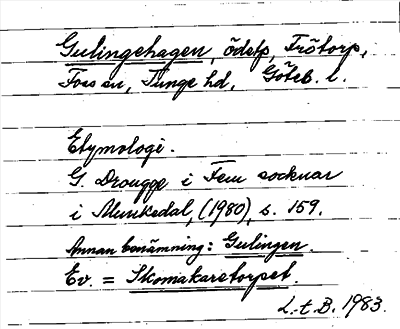 Gulingehagen, ödetp, Trötorp,
Foss sn, Tunge hd, Göteb. l.
Etymologi.
G. Drougge i Fem socknar
i Munkedal, (1980), s. 159.
Annan benämning: Gulingen.
Ev. = Skomakaretorpet.
L.t.B. 1983.